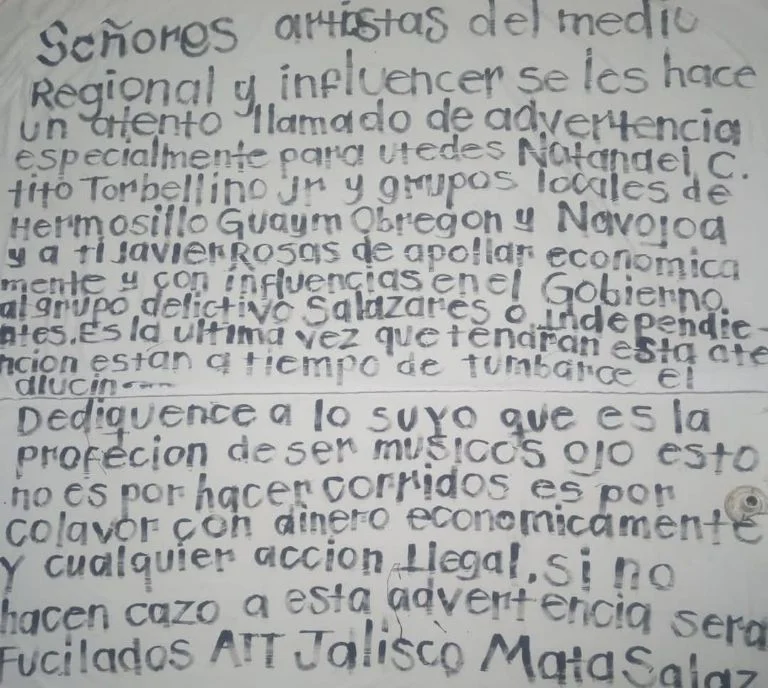 Señores artistas del medio
Regional y influencer se les hace
un atento llamado de advertencia
especialmente para utedes Natanael C.
tito Torbellino Jr y grupos locales de
Hermosillo Guaym Obregon y Navojoa
y a ti Javier Rosas de apollar economica
mente y con influencias en el Gobierno.
al grupo delictivo Salazares o independie-
ntes. Es la ultima vez que tendran esta ate
ncion estan a tiempo de tumbarce el
alucin
Dediquence a lo suyo que es la
profecion de ser musicos ojo esto
no es por hacer corridos es por
colavor con dinero economicamente
y cualquier accion Ilegal. si no
hacen cazo a esta advertencia sera
Fucilados ATT Jalisco Mata Salaz